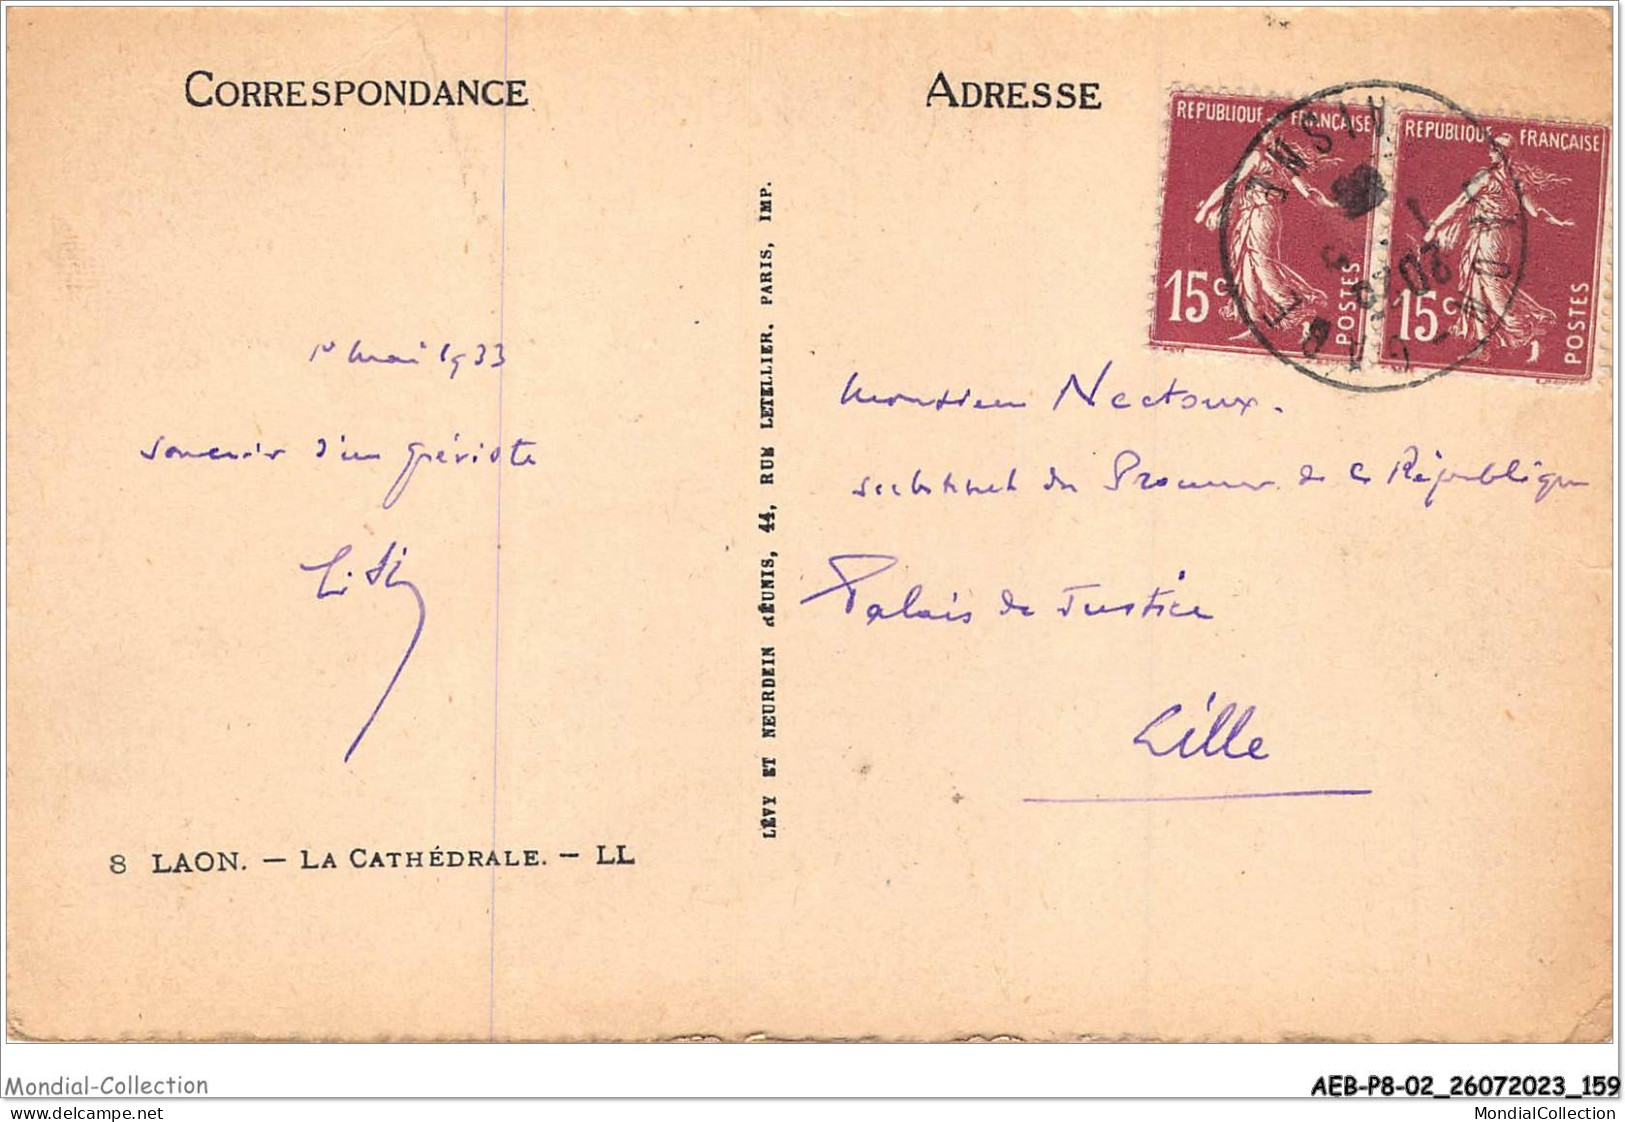 CORRESPONDANCE
ADRESSE
REPUBLIQUE FRANÇAISE
15c
POSTES
REPUBLIQUE FRANÇAISE
15c
POSTES
20
1r Mai 1933
souvenir d'un gréviste
Monsieur Nectoux.
substitut du Procureur de la République
Palais de Justice
Lille
LÉVY ET NEURDEIN RÉUNIS, 44, RUE LETELLIER, PARIS, IMP.
8 LAON. — LA CATHÉDRALE. — LL
Mondial-Collection
AEB-P8-02_26072023_159
delcampe.net
MondialCollection